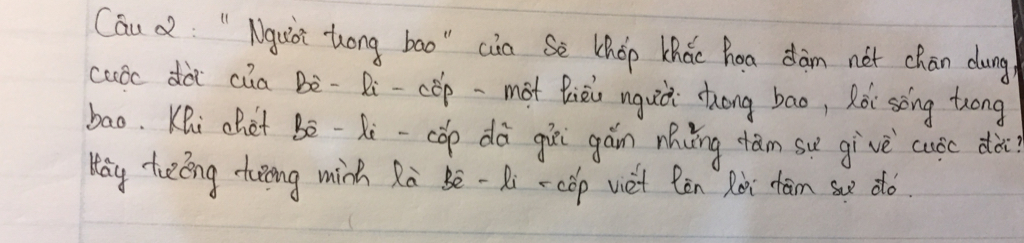 Câu 2: "Người trong bao" của Sê khốp khắc họa đậm nét chân dung,
cuộc đời của Bê-li-cốp - một kiểu người trong bao, lối sống trong
bao. Khi chết Bê-li-cốp đã gửi gắm những tâm sự gì về cuộc đời?
Hãy tưởng tượng mình là Bê-li-cốp viết lên lời tâm sự đó.